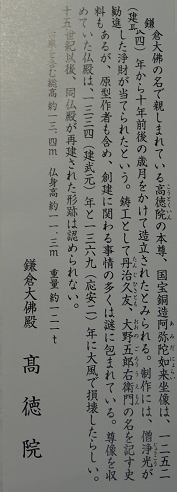 鎌倉大佛の名で親しまれている高徳院の本尊、国宝銅造阿弥陀如来坐像は、一二五二
(建長四)年から十年前後の歳月をかけて造立されたとみられる。制作には、僧浄光が
勧進した浄財が当てられたという。鋳工として丹治久友、大野五郎右衛門の名を記す史
料もあるが、原型作者も含め、創建に関わる事情の多くは謎に包まれている。尊像を収
めていた仏殿は、一三三四(建武元)年と一三六九(応安二)年に大風で損壊したらしい。
十五世紀以後、同仏殿が再建された形跡は認められない。
台座を含む総高 約一三.四m 仏身高 約一一.三m 重量 約一二一t
鎌倉大佛殿 高徳院